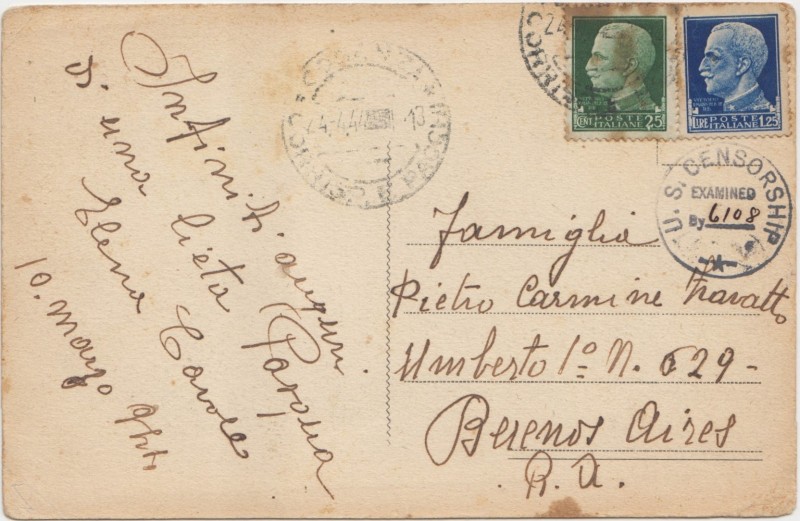 Infiniti auguri
d'una lieta Pasqua
Elena
10. marzo 944
COSENZA
24.4.44 13
CORRISP. E PACCHI
24
CORRISP
POSTE
ITALIANE
CENT 25
POSTE
ITALIANE
LIRE 1.25
U.S. CENSORSHIP
EXAMINED
By 6108
Famiglia
Pietro Carmine
Umberto 1º N. 629-
Buenos Aires
R.A.